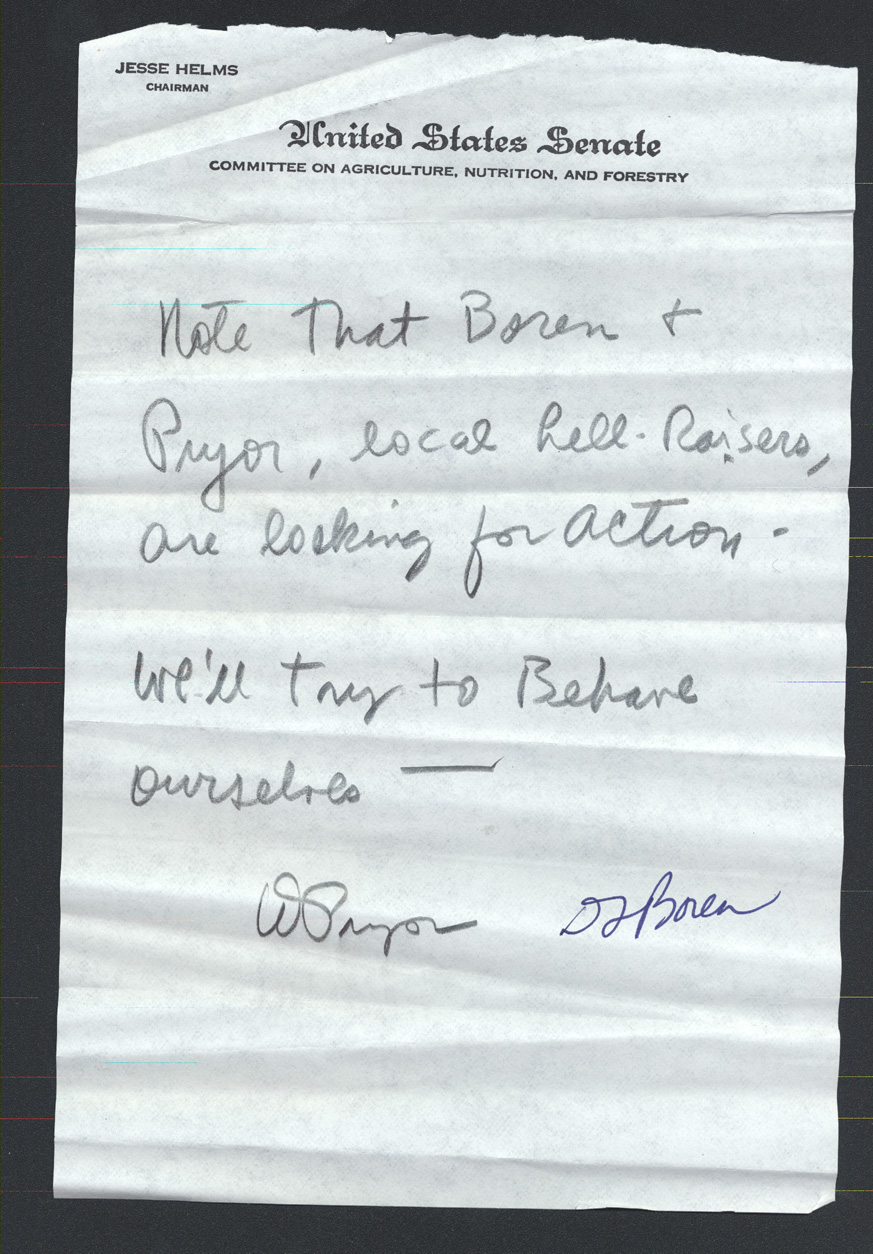 JESSE HELMS
CHAIRMAN
United States Senate
COMMITTEE ON AGRICULTURE, NUTRITION, AND FORESTRY
Note That Boren +
Pryor, local hell-Raisers,
are looking for action -
We'll try to Behave
ourselves —
D Pryor DL Boren